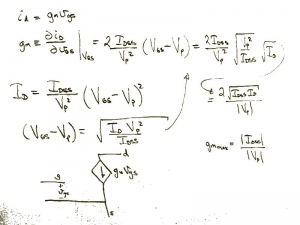 i_d = g_m v_gs
g_m ≡ ∂i_D / ∂v_GS |_V_GS = 2 I_DSS / V_p² (V_GS - V_p) = 2 I_DSS / V_p² √(V_p² / I_DSS) √I_D
I_D = I_DSS / V_p² (V_GS - V_p)²
= 2 √(I_DSS I_D) / |V_p|
(V_GS - V_p) = √(I_D V_p² / I_DSS)
g_m max = |I_DSS| / |V_p|
d
g_m v_gs
g
+
v_gs
-
s